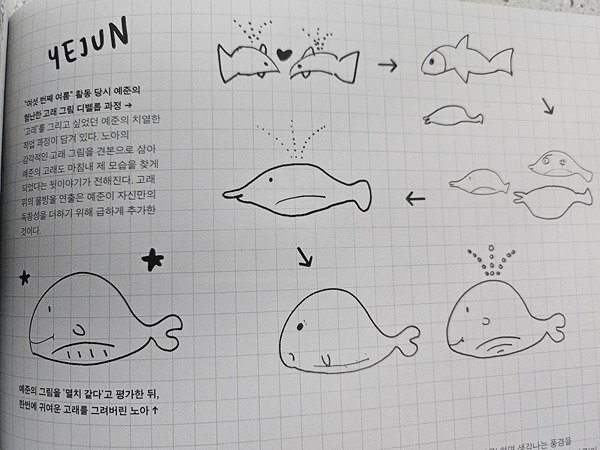 YEJUN
"여섯 번째 여름" 활동 당시 예준의
험난한 고래 그림 디벨롭 과정 →
'고래'를 그리고 싶었던 예준의 치열한
작업 과정이 담겨 있다. 노아의
감각적인 고래 그림을 견본으로 삼아
예준의 고래도 마침내 제 모습을 찾게
되었다는 뒷이야기가 전해진다. 고래
위의 물방울 연출은 예준이 자신만의
독창성을 더하기 위해 급하게 추가한
것이다.
예준의 그림을 '멸치 같다'고 평가한 뒤,
한번에 귀여운 고래를 그려버린 노아 ↑
생각나는 풍경을